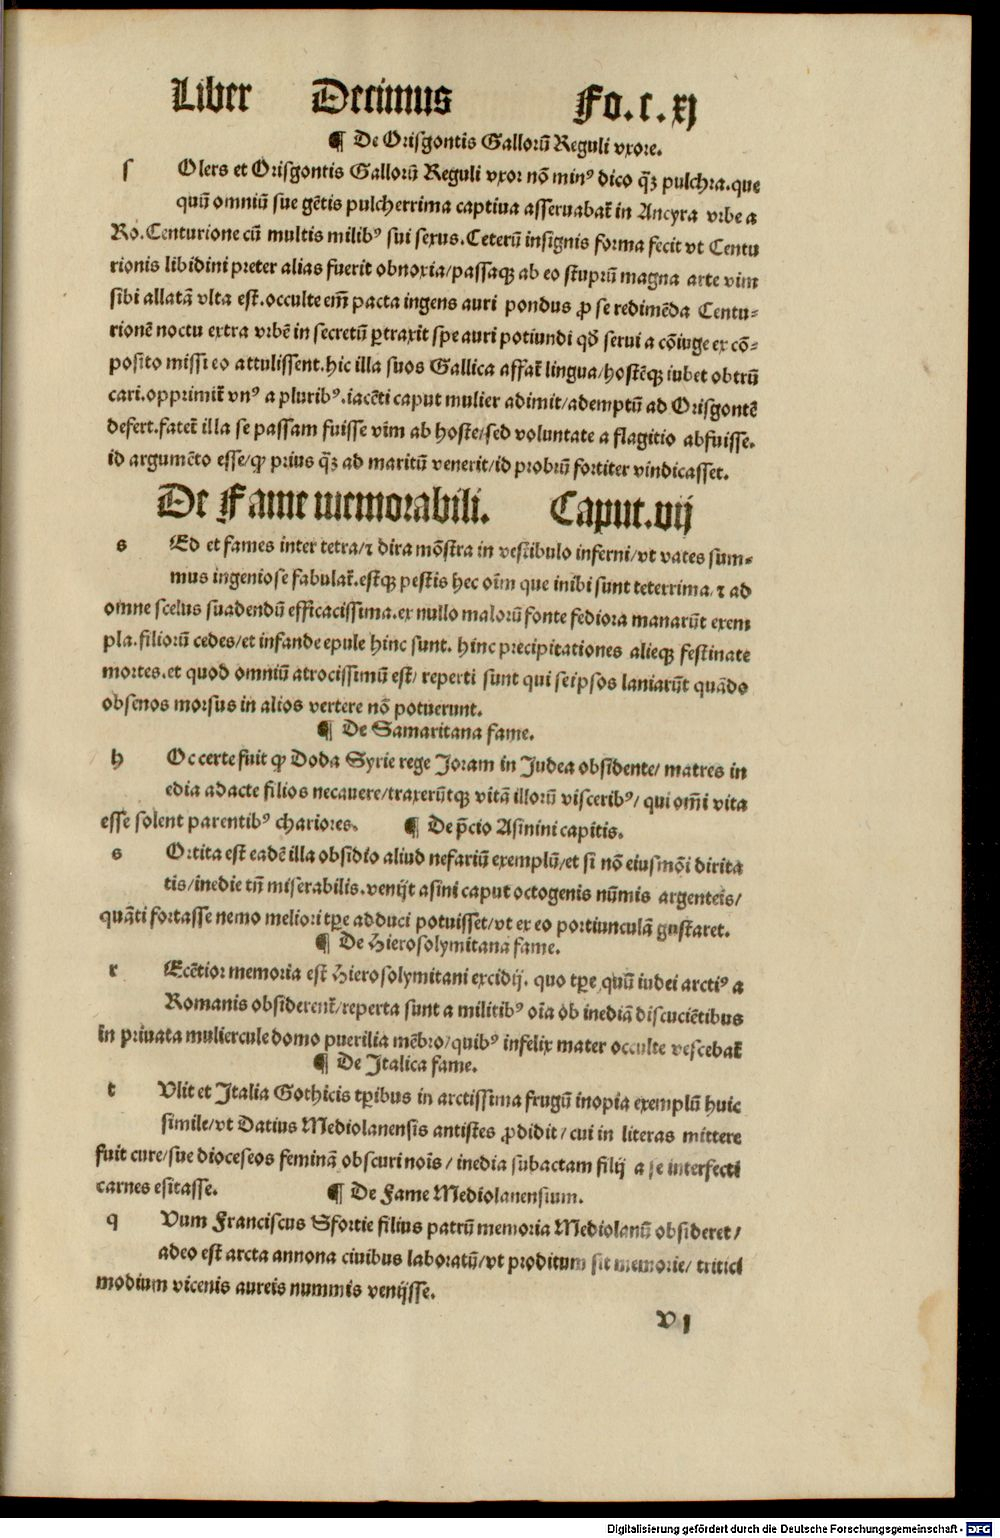 Liber Decimus Fo.c.xj
¶ De Orisgontis Gallorū Reguli vxore.
s Olers et Orisgontis Gallorū Reguli vxor nō minꝰ dico q̄ꝫ pulchra.que
quū omniū sue gētis pulcherrima captiua asseruabat̄ in Ancyra vrbe a
Ro.Centurione cū multis milibꝰ sui sexus.Ceterū insignis forma fecit vt Centu
rionis libidini preter alias fuerit obnoxia/passaqꝫ ab eo stuprū magna arte vim
sibi allatā vlta est.occulte em̄ pacta ingens auri pondus ꝓ se redimēda Centu-
rionē noctu extra vrbē in secretū ꝑtraxit spe auri potiundi qđ serui a cōiuge ex cō-
posito missi eo attulissent.hic illa suos Gallica affat̄ lingua/hostēqꝫ iubet obtrū
cari.opprimit̄ vnꝰ a pluribꝰ.iacēti caput mulier adimit/ademptū ad Orisgontē
defert.fatet̄ illa se passam fuisse vim ab hoste/sed voluntate a flagitio abfuisse.
id argumēto esse/ꝙ prius q̄ꝫ ad maritū venerit/id probrū fortiter vindicasset.
De Fame memorabili. Caput.vij
s Ed et fames inter tetra/⁊ dira mōstra in vestibulo inferni/vt vates sum-
mus ingeniose fabulat̄.estqꝫ pestis hec oīm que inibi sunt teterrima/⁊ ad
omne scelus suadendū efficacissima.ex nullo malorū fonte fediora manarūt exem
pla.filiorū cedes/et infande epule hinc sunt. hinc precipitationes alieqꝫ festinate
mortes.et quod omniū atrocissimū est/ reperti sunt qui seipsos laniarūt quādo
obsenos morsus in alios vertere nō potuerunt.
¶ De Samaritana fame.
h Oc certe fuit ꝙ Doda Syrie rege Joram in Judea obsidente/ matres in
edia adacte filios necauere/traxerūtqꝫ vitā illorū visceribꝰ/ qui om̄i vita
esse solent parentibꝰ chariores. ¶ De p̄cio Asinini capitis.
s Ortita est eadē illa obsidio aliud nefariū exemplū/et si nō eiusmōi dirita
tis/inedie tn̄ miserabilis.venijt asini caput octogenis nūmis argenteis/
quāti fortasse nemo meliori tꝑe adduci potuisset/vt ex eo portiunculā gustaret.
¶ De Hierosolymitana fame.
r Ecētior memoria est Hierosolymitani excidij. quo tꝑe quū iudei arctiꝰ a
Romanis obsiderent̄/reperta sunt a militibꝰ oīa ob inediā discuciētibus
in priuata muliercule domo puerilia mēbro/quibꝰ infelix mater occulte vescebat̄
¶ De Italica fame.
t Vlit et Italia Gothicis tꝑibus in arctissima frugū inopia exemplū huic
simile/vt Datius Mediolanensis antistes ꝓdidit/ cui in literas mittere
fuit cure/sue dioceseos feminā obscuri noīs/ inedia subactam filij a se interfecti
carnes esitasse. ¶ De Fame Mediolanensium.
q Vum Franciscus Sfortie filius patrū memoria Mediolanū obsideret/
adeo est arcta annona ciuibus laboratū/vt proditum sit memorie/ tritici
modium vicenis aureis nummis venijsse.
v j
Digitalisierung gefördert durch die Deutsche Forschungsgemeinschaft - DFG